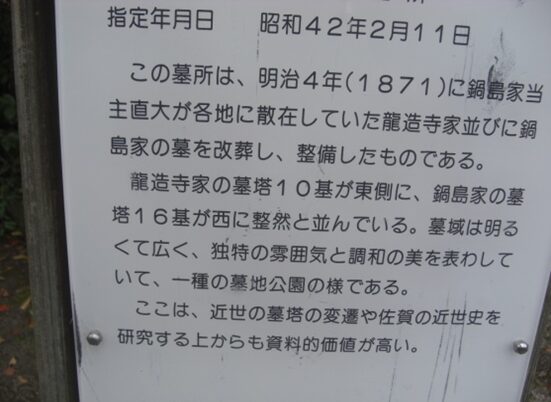 指定年月日　昭和４２年２月１１日
この墓所は、明治４年(１８７１)に鍋島家当
主直大が各地に散在していた龍造寺家並びに鍋
島家の墓を改葬し、整備したものである。
龍造寺家の墓塔１０基が東側に、鍋島家の墓
塔１６基が西に整然と並んでいる。墓域は明る
くて広く、独特の雰囲気と調和の美を表わして
いて、一種の墓地公園の様である。
ここは、近世の墓塔の変遷や佐賀の近世史を
研究する上からも資料的価値が高い。